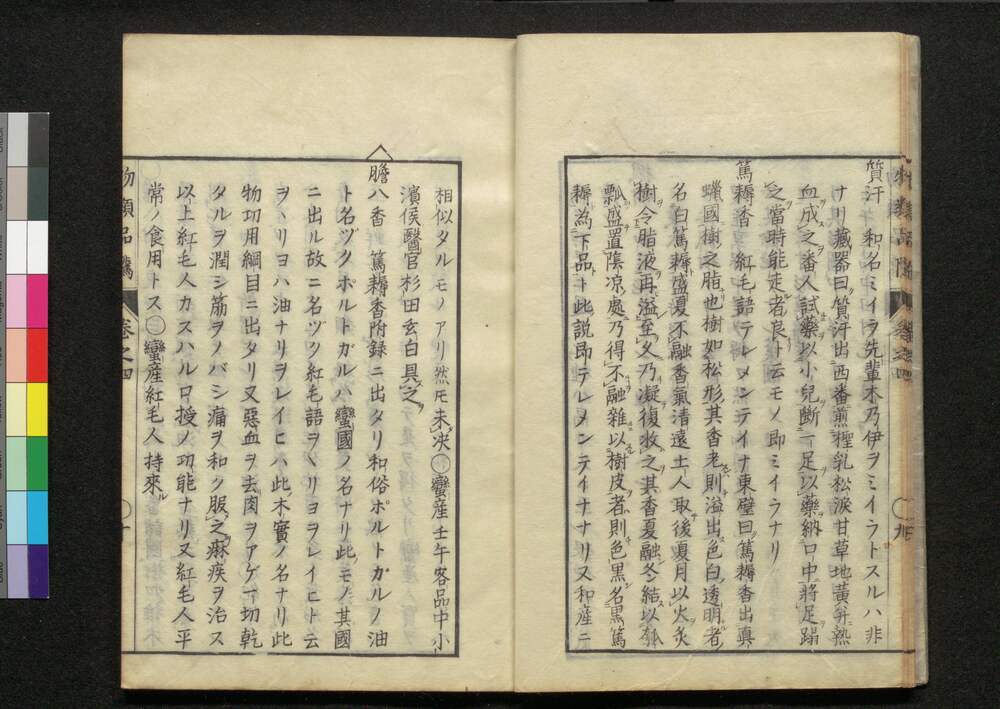 質汗 和名ミイラ先輩木乃伊ヲミイラトスルハ非
ナリ藏器曰質汗出西番煎檉乳松涙甘草地黃并熱
血成之番人試藥以小兒斷一足以藥納口中將足蹋
之當時能走者良ト云モノ即ミイラナリ
篤耨香 紅毛語テレメンテイナ東壁曰篤耨香出眞
臘國樹之脂也樹如松形其香老則溢出色白透明者
名白篤耨盛夏不融香氣清遠土人取後夏月以火炙
樹令脂液再溢至冬乃凝復收之其香夏融冬結以瓠
瓢盛置陰凉處乃得不融雜以樹皮者則色黑名黑篤
耨為下品ト此説即テレメンテイナナリ又和産ニ
物類品隲 卷之四 〇九
相似タルモノアリ然𪜈未决〇蠻産壬午客品中小
濱侯醫官杉田玄白具之
膽八香 篤耨香附録ニ出タリ和俗ポルトカルノ油
ト名ヅクホルトガルハ蠻國ノ名ナリ此モノ其國
ニ出ル故ニ名ヅク紅毛語ヲヽリヨヲレイヒト云
ヲヽリヨハ油ナリヲレイヒハ此木實ノ名ナリ此
物功用綱目ニ出タリ又惡血ヲ去肉ヲアゲ一切乾
タルヲ潤シ筋ヲノバシ痛ヲ和ク服之麻疾ヲ治ス
以上紅毛人カスハルロ授ノ功能ナリ又紅毛人平
常ノ食用トス〇蠻産紅毛人持來ル
物類品隲 卷之四 〇十